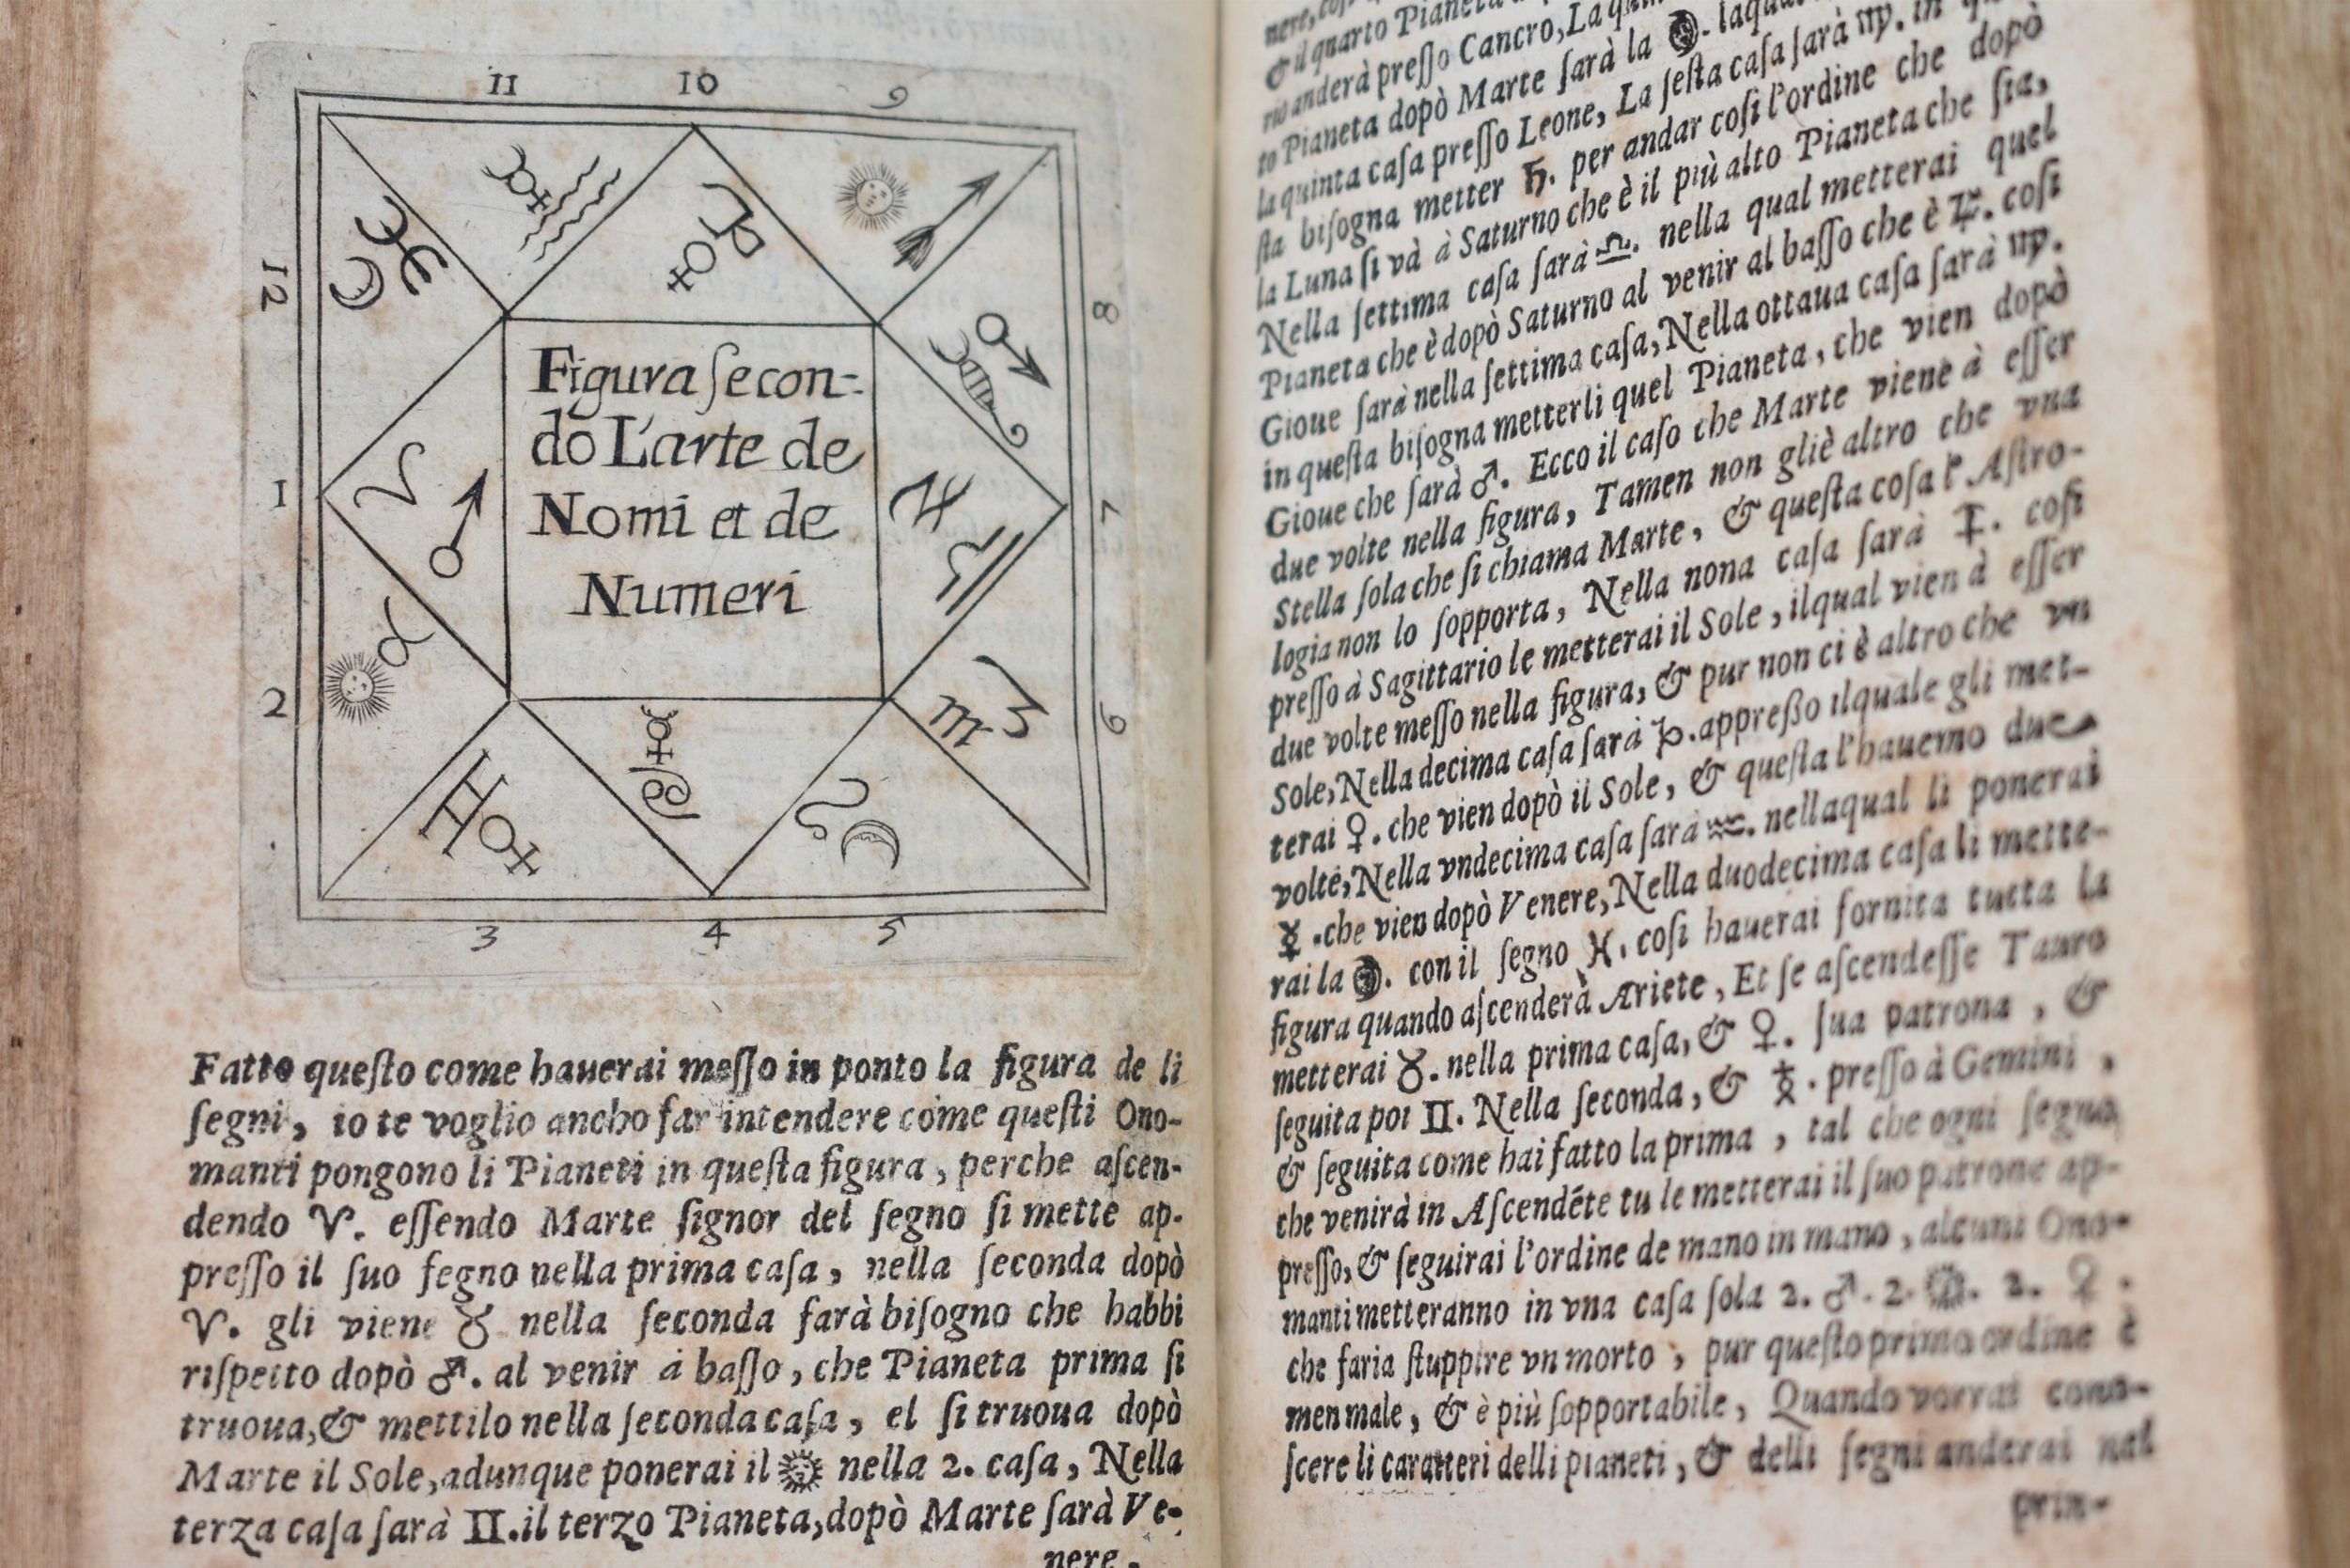 11 10 9
12
8
1
7
2
6
3 4 5
Figura ſecon-
do L'arte de
Nomi et de
Numeri
Fatto queſto come hauerai meſſo in ponto la figura de li
ſegni, io te voglio ancho far intendere come queſti Ono-
manti pongono li Pianeti in queſta figura, perche aſcen-
dendo ♈. eſſendo Marte ſignor del ſegno ſi mette ap-
preſſo il ſuo ſegno nella prima caſa, nella ſeconda dopò
♈. gli viene ♉ nella ſeconda farà biſogno che habbi
riſpetto dopò ♂. al venir à baſſo, che Pianeta prima ſi
truoua, & mettilo nella ſeconda caſa, el ſi truoua dopò
Marte il Sole, adunque ponerai il ☉ nella 2. caſa, Nella
terza caſa ſarà II. il terzo Pianeta, dopò Marte ſarà Ve-
nere,
& il quarto Pianeta
anderà preſſo Cancro, La
to Pianeta dopò Marte ſarà la ☽. laqual
la quinta caſa preſſo Leone, La ſeſta caſa ſarà ♍. in
ſta biſogna metter ♄. per andar coſi l'ordine che dopò
la Luna ſi và à Saturno che è il più alto Pianeta che ſia,
Nella ſettima caſa ſarà ♎. nella qual metterai quel
Pianeta che è dopò Saturno al venir al baſſo che è ♃. coſi
Gioue ſarà nella ſettima caſa, Nella ottaua caſa ſarà ♍.
in queſta biſogna metterli quel Pianeta, che vien dopò
Gioue che ſarà ♂. Ecco il caſo che Marte viene à eſſer
due volte nella figura, Tamen non gliè altro che vna
Stella ſola che ſi chiama Marte, & queſta coſa l'Aſtro-
logia non lo ſopporta, Nella nona caſa ſarà ♐. coſi
preſſo à Sagittario le metterai il Sole, ilqual vien à eſſer
due volte meſſo nella figura, & pur non ci è altro che vn
Sole, Nella decima caſa ſarà ♑. appreßo ilquale gli met-
terai ♀. che vien dopò il Sole, & queſta l'hauemo due
volte, Nella vndecima caſa ſarà ♒. nellaqual li ponerai
☿. che vien dopò Venere, Nella duodecima caſa li mette-
rai la ☽. con il ſegno ♓. coſi hauerai fornita tutta la
figura quando aſcenderà Ariete, Et ſe aſcendeſſe Tauro
metterai ♉. nella prima caſa, & ♀. ſua patrona, &
ſeguita poi II. Nella ſeconda, & ☿. preſſo à Gemini,
& ſeguita come hai fatto la prima, tal che ogni ſegno
che venirà in Aſcendẽte tu le metterai il ſuo patrone ap-
preſſo, & ſeguirai l'ordine de mano in mano, alcuni Ono-
manti metteranno in vna caſa ſola 2. ♂. 2. ☉. 2. ♀.
che faria ſtuppire vn morto, pur queſto primo ordine è
men male, & è più ſopportabile, Quando vorrai cono-
ſcere li caratteri delli pianeti, & delli ſegni anderai nel
prin-